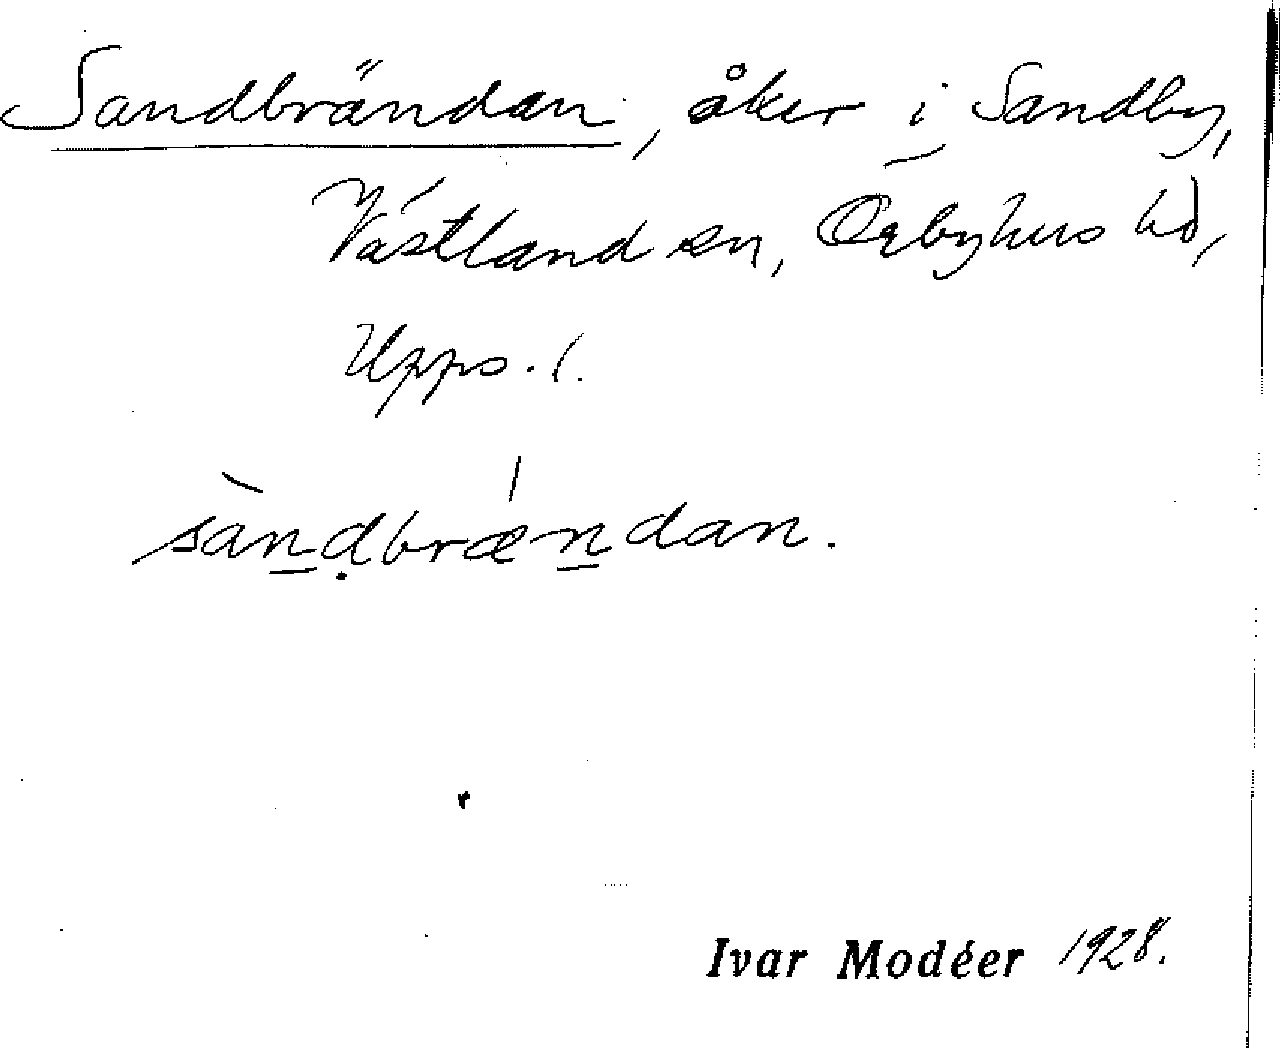 Sandbrändan, åker i Sandby,
Västland sn, Örbyhus hd,
Upps. l.
sàn̲ḍbræ̍n̲dan.
Ivar Modéer 1928.